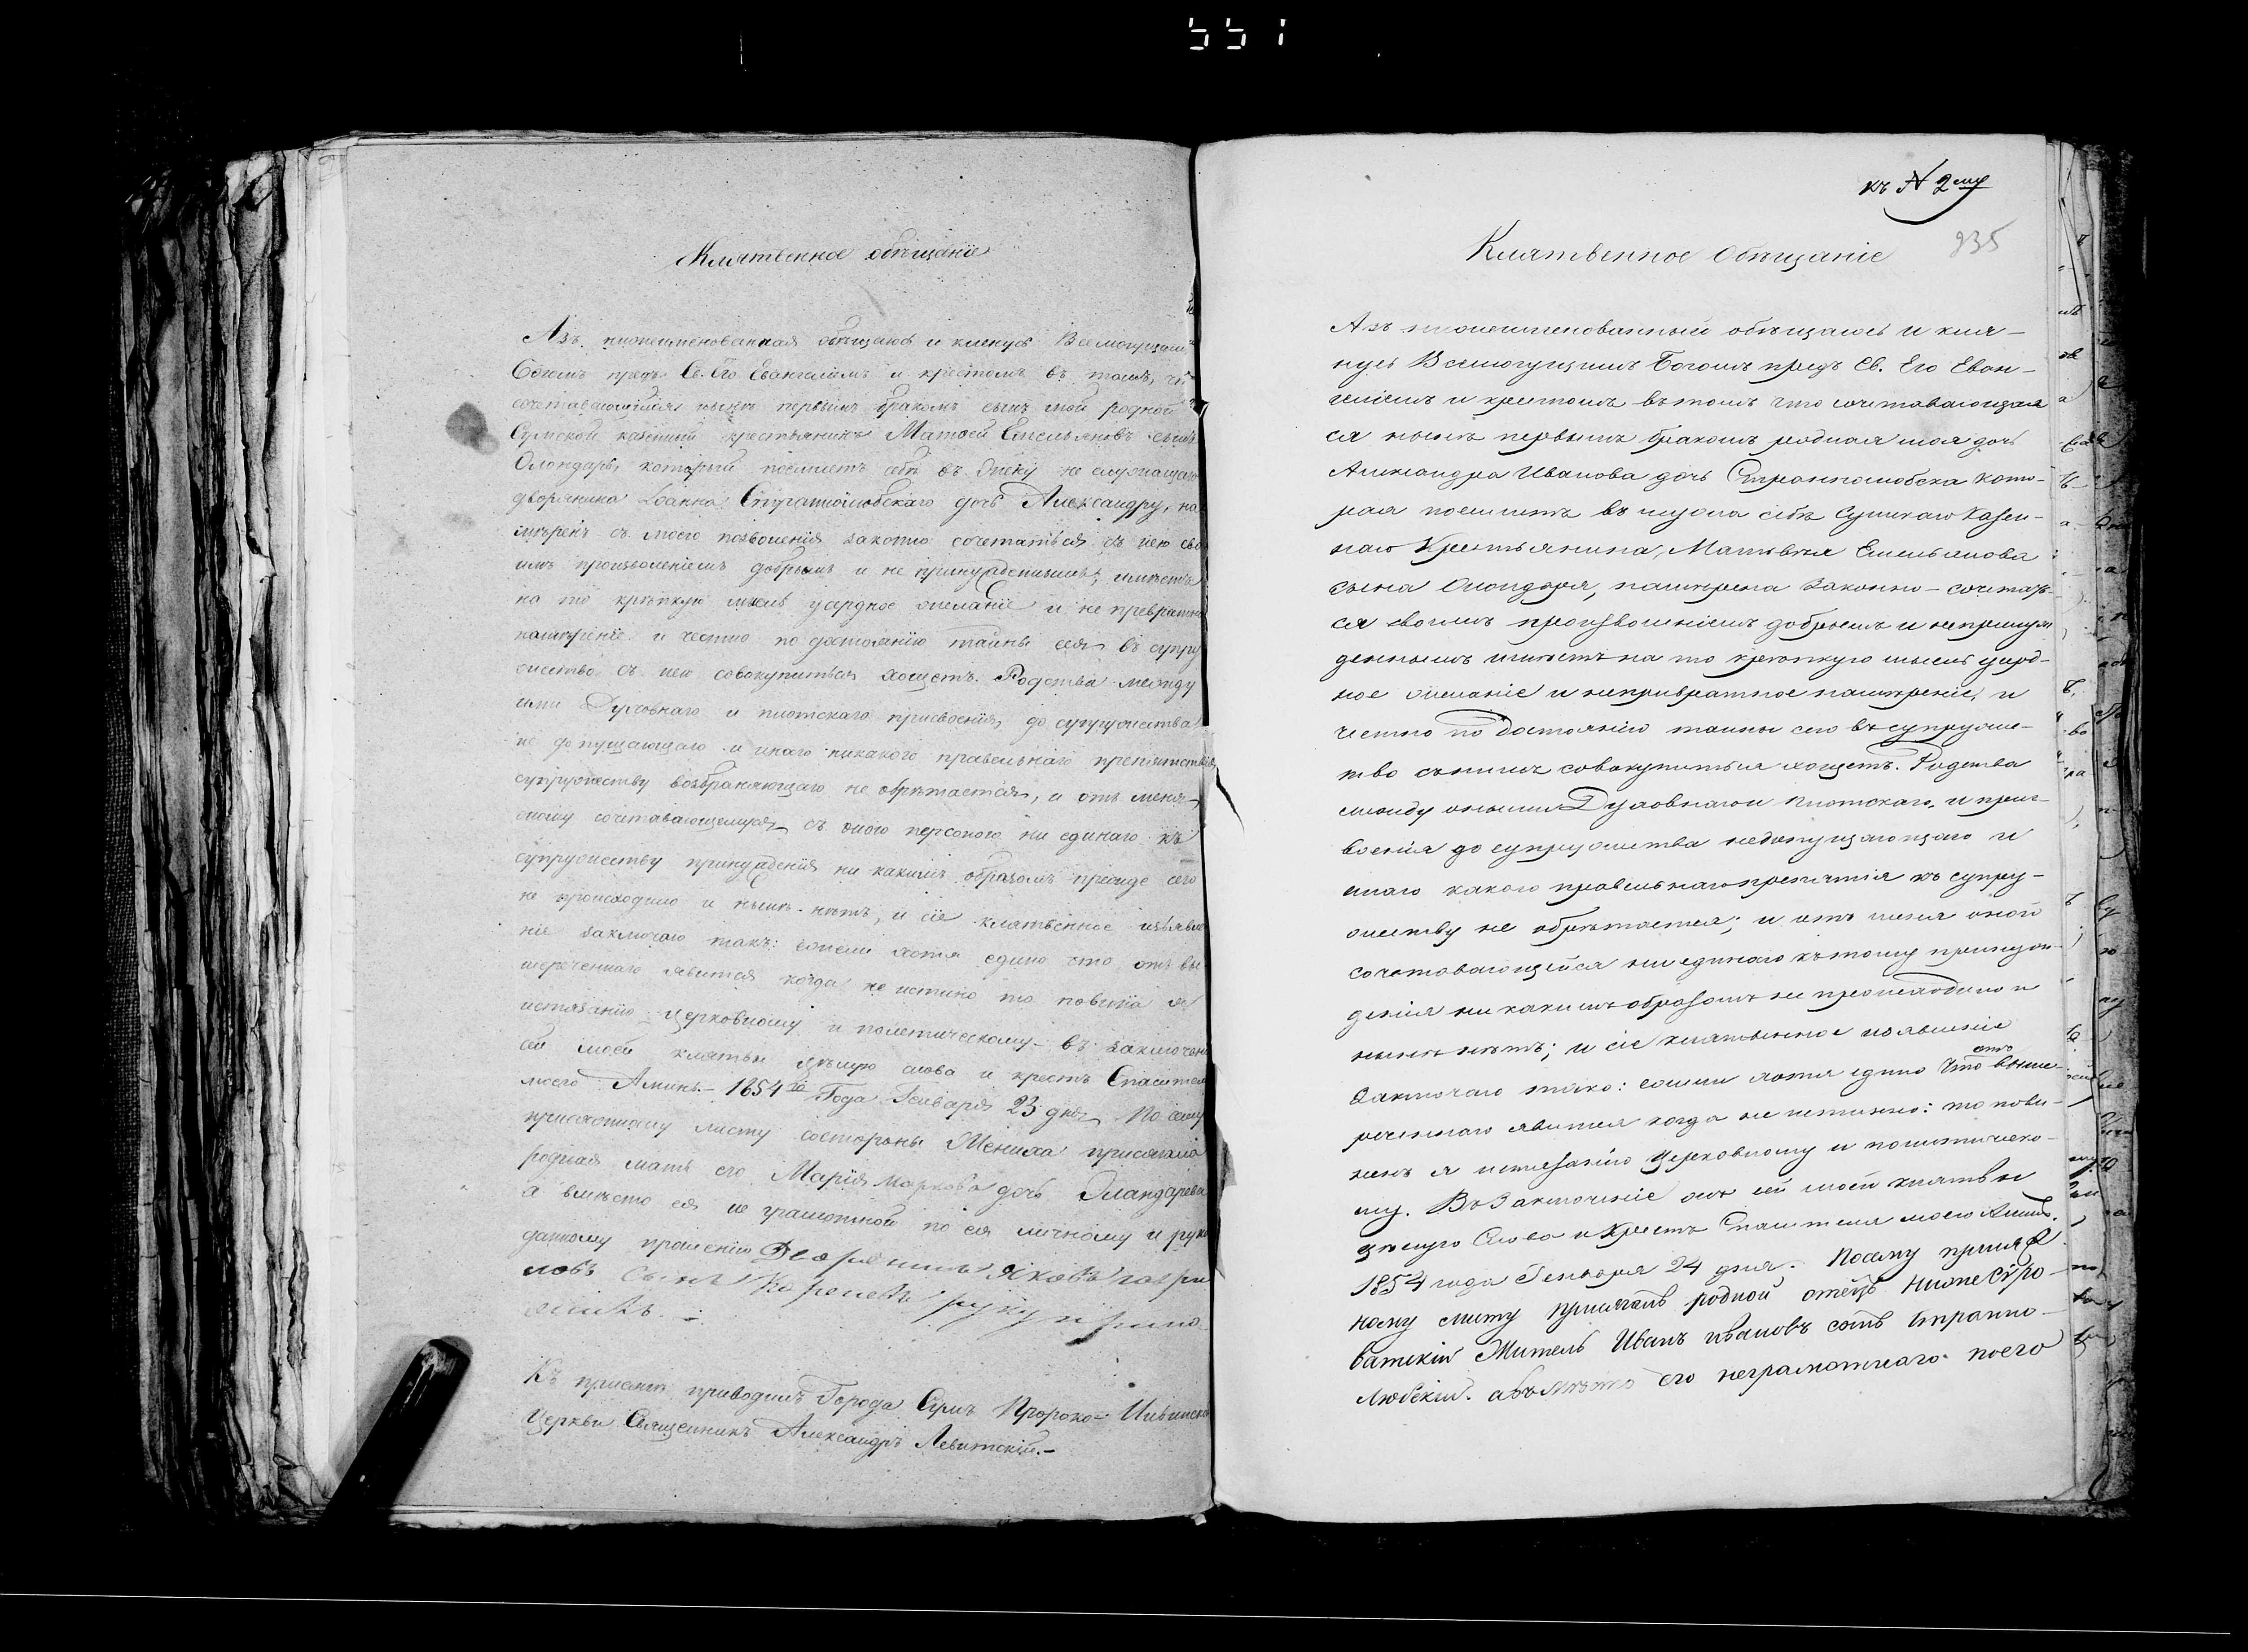 551
Клятвенное обѣщаніе
Азъ нижепименованная обѣщаюсь и кленусь Всемогущимъ
Богомъ предъ Св. Его Евангеліемъ и крестомъ въ томъ, что
сочетавающійся нынѣ первымъ бракомъ сынъ мой родной
Сумской казенный крестьянинъ Матвей Емельяновъ сынъ
Олондарь, который поемлетъ себѣ въ жену не служащаго
дворянина Іоанна Страннолюбскаго дочь Александру, на
мѣренъ съ моего позволенія законно сочетаться съ нею сво
имъ произволеніемъ добрымъ и не принужденнымъ, имѣетъ
на то крѣпкую мысль усердное желаніе и не превратное
намѣреніе и честно по достоянію тайны сея въ супру
жество съ нею совокупиться хощетъ. Родства между
ими Духовнаго и плотскаго присвоенія до супружества
не допущающаго и инаго никакого правельнаго препятствія
супружеству возбраняющаго не обрѣтается, и отъ меня
оному сочетавающемуся съ оною персоною ни единаго къ
супружеству принужденія ни какимъ образомъ прежде сего
не происходило и нынѣ нѣтъ, и сіе клятвенное изъявле
ніе заключаю такъ: ежели хотя едино что отъ вы
шереченнаго явится когда не истино то повинна я
истязанію церковному и политическому въ заключеніе
сей моей клятвы цѣлую слова и крестъ Спасителя
моего Аминь.- 1854го Года Генваря 23 дня По сему
присяжному листу состороны Жениха присягала
родная мать его Марія Маркова дочь Оландарева
а вмѣсто ея не грамотной по ея личному и руко
данному прошенію Дворянинъ Яковъ Гаври
ловъ сынъ руку прило
жилъ.
Къ присягѣ приводилъ Города Сумъ Пророко=Ильинской
Церкви Священникъ Александръ Левитскій.-
къ N 2му
935
Клятвенное Обѣщаніе
Азъ нижепименованный обѣщаюсь и кля-
нусь Всемогущимъ Богомъ предъ Св. Его Еван-
геліемъ и крестомъ въ томъ что сочетавающая
ся нынѣ первымъ бракомъ родная моя дочь
Александра Иванова дочь Страннолюбска кото-
рая поемлетъ въ мужа себѣ Сумскаго Казен-
наго Крестьянина, Матвѣя Емельянова
сына Олондаря, намѣрена Законно - сочетать-
ся своимъ произволеніемъ добрымъ и непринуж
деннымъ имѣетъ на то крепкую мысль усерд-
ное желаніе и непривратное намѣреніе, и
честно по достоянію тайны сего въ супруже-
тво съ нимъ совокупиться хощетъ. Родства
между оными Духовнаго и плотскаго, и прис-
военія до супружества недопущающаго и
инаго какого правельнаго препятія къ супру-
жеству не обрѣтается; и отъ меня оной
сочетавающейся ни единаго къ тому принуж-
денія ни какимъ образомъ не происходило и
нынѣ нѣтъ; и сіе клятвенное изъявленіе
Заключаю тако: ежели хотя едино что отъ выше-
реченнаго явится когда не истинно: то пови-
ненъ я истязанію Церковному и политическо-
му. Въ Заключеніе же сей моей клятвы
цѣлую Слова и Крестъ Спасителя моего Аминь.
1854 года Генваря 24 дня. Посему присяж
ному листу присягалъ родной отецъ Нижнесыро-
ватскій Житель Иванъ Ивановъ сынъ Странно-
Любскій. авъмѣсто его неграмотнаго поего